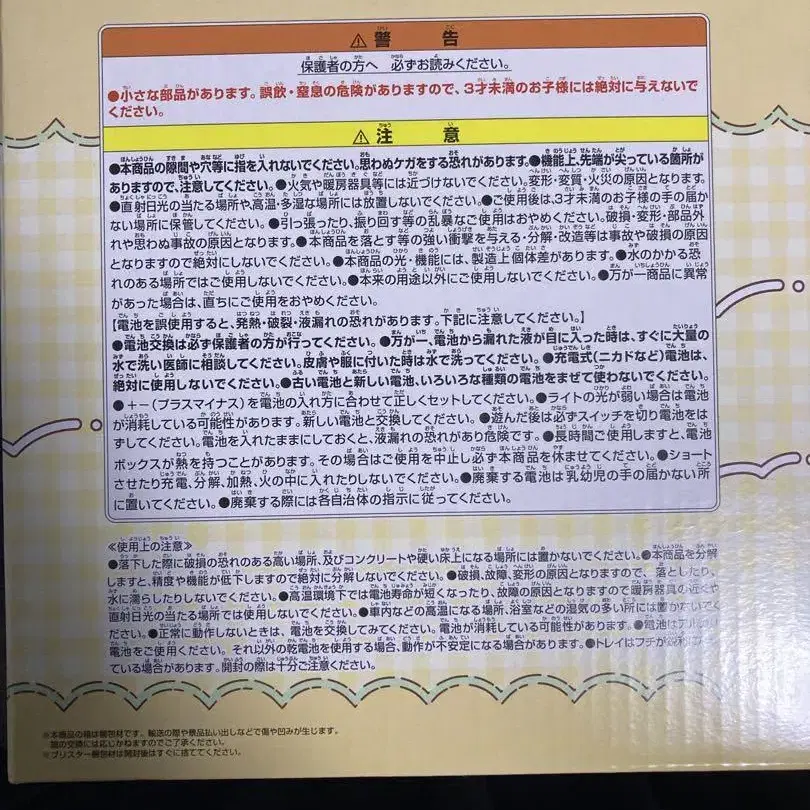 ⚠警告
保護者の方へ 必ずお読みください。
●小さな部品があります。誤飲・窒息の危険がありますので、3才未満のお子様には絶対に与えないで
ください。
⚠注意
●本商品の隙間や穴等に指を入れないでください。思わぬケガをする恐れがあります。●機能上、先端が尖っている箇所が
ありますので、注意してください。●火気や暖房器具等には近づけないでください。変形・変質・火災の原因となります。
●直射日光の当たる場所や、高温・多湿な場所には放置しないでください。●ご使用後は、3才未満のお子様の手の届か
ない場所に保管してください。●引っ張ったり、振り回す等の乱暴なご使用はおやめください。破損・変形・部品外
れや思わぬ事故の原因となります。●本商品を落とす等の強い衝撃を与える・分解・改造等は事故や破損の原因
となりますので絶対にしないでください。●本商品の光・機能には、製造上個体差があります。●水のかかる恐
れのある場所ではご使用しないでください。●本来の用途以外にご使用しないでください。●万が一商品に異常
があった場合は、直ちにご使用をおやめください。
【電池を誤使用すると、発熱・破裂・液漏れの恐れがあります。下記に注意してください。】
●電池交換は必ず保護者の方が行ってください。●万が一、電池から漏れた液が目に入った時は、すぐに大量の
水で洗い医師に相談してください。皮膚や服に付いた時は水で洗ってください。●充電式(ニカドなど)電池は、
絶対に使用しないでください。●古い電池と新しい電池、いろいろな種類の電池をまぜて使わないでください。
●+-(プラスマイナス)を電池の入れ方に合わせて正しくセットしてください。●ライトの光が弱い場合は電池
が消耗している可能性があります。新しい電池と交換してください。●遊んだ後は必ずスイッチを切り電池をは
ずしてください。電池を入れたままにしておくと、液漏れの恐れがあり危険です。●長時間ご使用しますと、電池
ボックスが熱を持つことがあります。その場合はご使用を中止し必ず本商品を休ませてください。●ショート
させたり充電、分解、加熱、火の中に入れたりしないでください。●廃棄する電池は乳幼児の手の届かない所
に置いてください。●廃棄する際には各自治体の指示に従ってください。
≪使用上の注意≫
●落下した際に破損の恐れのある高い場所、及びコンクリートや硬い床上になる場所には置かないでください。●本商品を分解
しますと、精度や機能が低下しますので絶対に分解しないでください。●破損、故障、変形の原因となりますので、落としたり、
水に濡らしたりしないでください。●高温環境下では電池寿命が短くなったり、故障の原因となりますので暖房器具の近くや
直射日光の当たる場所では使用しないでください。●車内などの高温になる場所、浴室などの湿気の多い所には置かないでく
ださい。●正常に動作しないときは、電池を交換してみてください。電池が消耗している可能性があります。●電池は
電池をご使用ください。それ以外の乾電池を使用する場合、動作が不安定になる場合があります。●トレイはフチが
ている場合があります。開封の際は十分ご注意ください。
※本商品の箱は梱包材です。輸送の際や景品払い出しなどで傷や凹みが生じます。
箱の交換には応じかねますのでご了承ください。
※ブリスター梱包材は開封後はすぐに捨ててください。